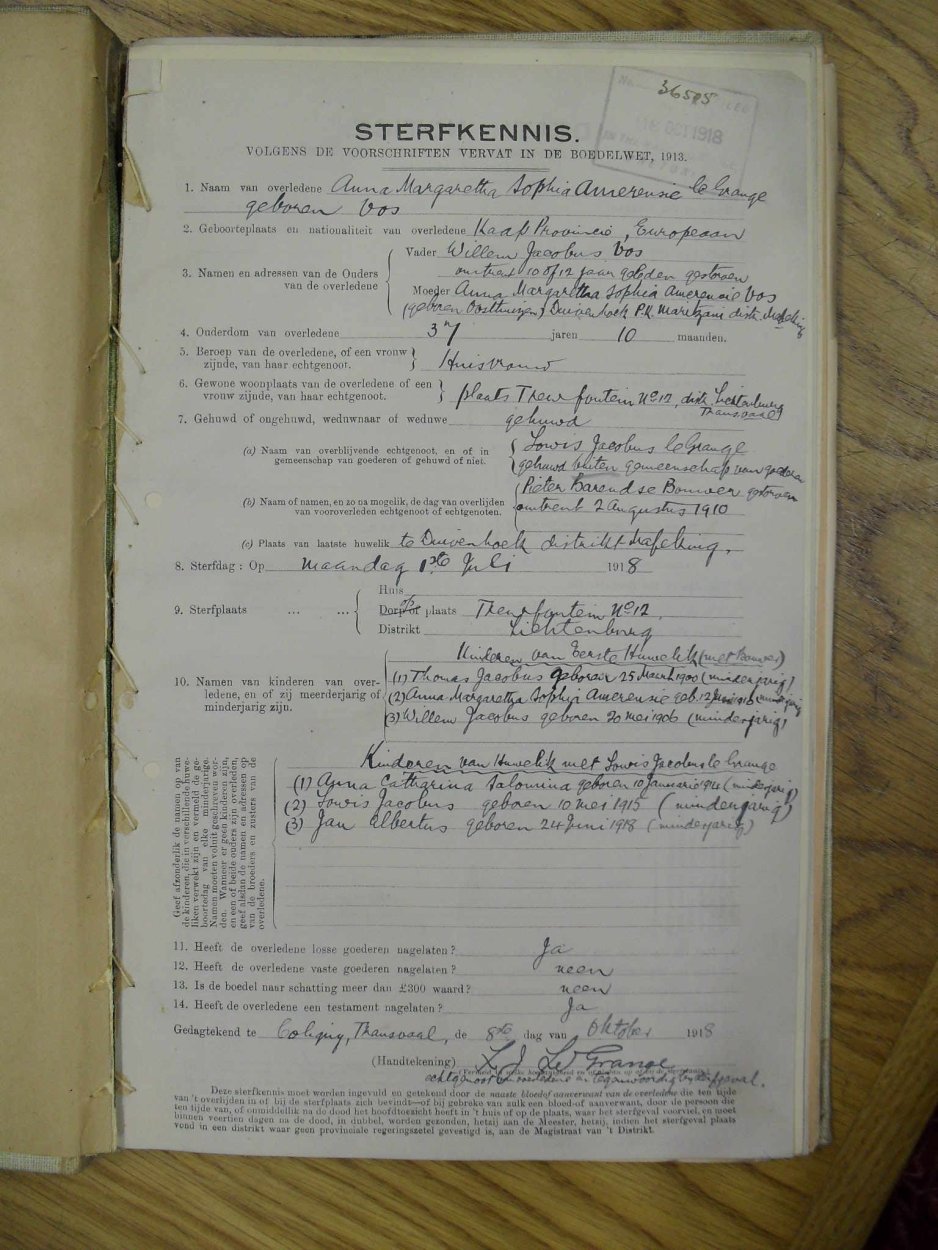 36585
OCT 1918
STERFKENNIS.
VOLGENS DE VOORSCHRIFTEN VERVAT IN DE BOEDELWET, 1913.
1. Naam van overledene Anna Margaretha Sophia Amerensie le Grange
geboren Vos
2. Geboorteplaats en nationaliteit van overledene Kaap Provincie, Europeaan
3. Namen en adressen van de Ouders van de overledene
Vader Willem Jacobus Vos
omtrent 10 of 12 jaar geleden gestorven
Moeder Anna Margaretha Sophia Amerensie Vos
(geboren Oosthuizen) Duivenhoek P.K. Maritzani distr. Mafeking
4. Ouderdom van overledene 37 jaren 10 maanden.
5. Beroep van de overledene, of een vrouw zijnde, van haar echtgenoot. Huisvrouw
6. Gewone woonplaats van de overledene of een vrouw zijnde, van haar echtgenoot. plaats Treurfontein No 12, distr. Lichtenburg
Transvaal
7. Gehuwd of ongehuwd, weduwnaar of weduwe gehuwd
(a) Naam van overblijvende echtgenoot, en of in gemeenschap van goederen of gehuwd of niet.
Lowis Jacobus le Grange
gehuwd buiten gemeenschap van goederen
(b) Naam of namen, en zo na mogelik, de dag van overlijden van vooroverleden echtgenoot of echtgenoten.
Pieter Barend se Bouwer gestorven
omtrent 2 Augustus 1910
(c) Plaats van laatste huwelik te Duivenhoek distrikt Mafeking.
8. Sterfdag: Op Maandag 1ste Juli 1918
9. Sterfplaats ... ...
Huis
Dorp of plaats Treurfontein No 12
Distrikt Lichtenburg
10. Namen van kinderen van overledene, en of zij meerderjarig of minderjarig zijn.
Kinderen van Eerste Huwelik (met Bouwer)
(1) Thomas Jacobus geboren 25 Maart 1900 (minderjarig)
(2) Anna Margaretha Sophia Amerensie geb. 12 minderjarig
(3) Willem Jacobus geboren 20 Mei 1906 (minderjarig)
Geef afzonderlik de namen op van de kinderen, die in verschillende huweliken verwekt zijn en vermeld de geboortedag van elke minderjarige. Namen moeten voluit geschreven worden. Wanneer er geen kinderen zijn, en een of beide ouders zijn overleden, geef alsdan de namen en adressen op van de broeders en zusters van de overledene.
Kinderen van Huwelik met Lowis Jacobus le Grange
(1) Anna Catharina Salomina geboren 10 Januarie (minderjarig)
(2) Lowis Jacobus geboren 10 Mei 1915 (minderjarig)
(3) Jan Albertus geboren 24 Juni 1918 (minderjarig)
11. Heeft de overledene losse goederen nagelaten? Ja
12. Heeft de overledene vaste goederen nagelaten? neen
13. Is de boedel naar schatting meer dan £300 waard? neen
14. Heeft de overledene een testament nagelaten? Ja
Gedagtekend te Coligny, Transvaal, de 8ste dag van Oktober 1918
(Handtekening) L J Le Grange
echtgenoot van overledene en tegenwoordig bij sterfgeval.
Deze sterfkennis moet worden ingevuld en getekend door de naaste bloed of aanverwant van de overledene die ten tijde
van 't overlijden in of bij de sterfplaats zich bevindt—of bij gebreke van zulk een bloed of aanverwant, door de persoon die
ten tijde van, of onmiddellik na de dood het hoofdtoezicht heeft in 't huis of op de plaats, waar het sterfgeval voorviel, en moet
binnen veertien dagen na de dood, in dubbel, worden gezonden, hetzij aan de Meester, hetzij, indien het sterfgeval plaats
vond in een distrikt waar geen provinciale regeringszetel gevestigd is, aan de Magistraat van 't Distrikt.